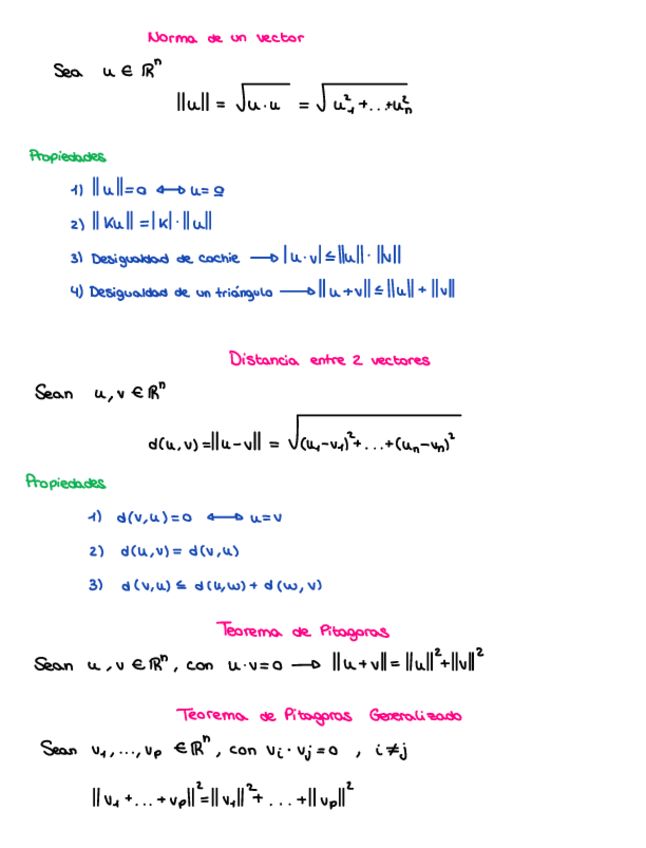 Norma de un vector
Sea u ∈ ℝⁿ
||u|| = √(u·u) = √(u₁²+...+uₙ²)
Propiedades
1) ||u||=0 ⟷ u=0
2) ||Ku|| = |K|·||u||
3) Desigualdad de cochie ⟶ |u·v| ≤ ||u||·||v||
4) Desigualdad de un triángulo ⟶ ||u+v|| ≤ ||u|| + ||v||
Distancia entre 2 vectores
Sean u, v ∈ ℝⁿ
d(u,v) = ||u-v|| = √((u₁-v₁)²+...+(uₙ-vₙ)²)
Propiedades
1) d(v,u)=0 ⟷ u=v
2) d(u,v) = d(v,u)
3) d(v,u) ≤ d(u,w) + d(w,v)
Teorema de Pitagoras
Sean u, v ∈ ℝⁿ, con u·v=0 ⟶ ||u+v|| = ||u||²+||v||²
Teorema de Pitagoras Generalizado
Sean v₁,...,vₚ ∈ ℝⁿ, con vᵢ·vⱼ=0 , i≠j
||v₁+...+vₚ||²=||v₁||²+...+||vₚ||²